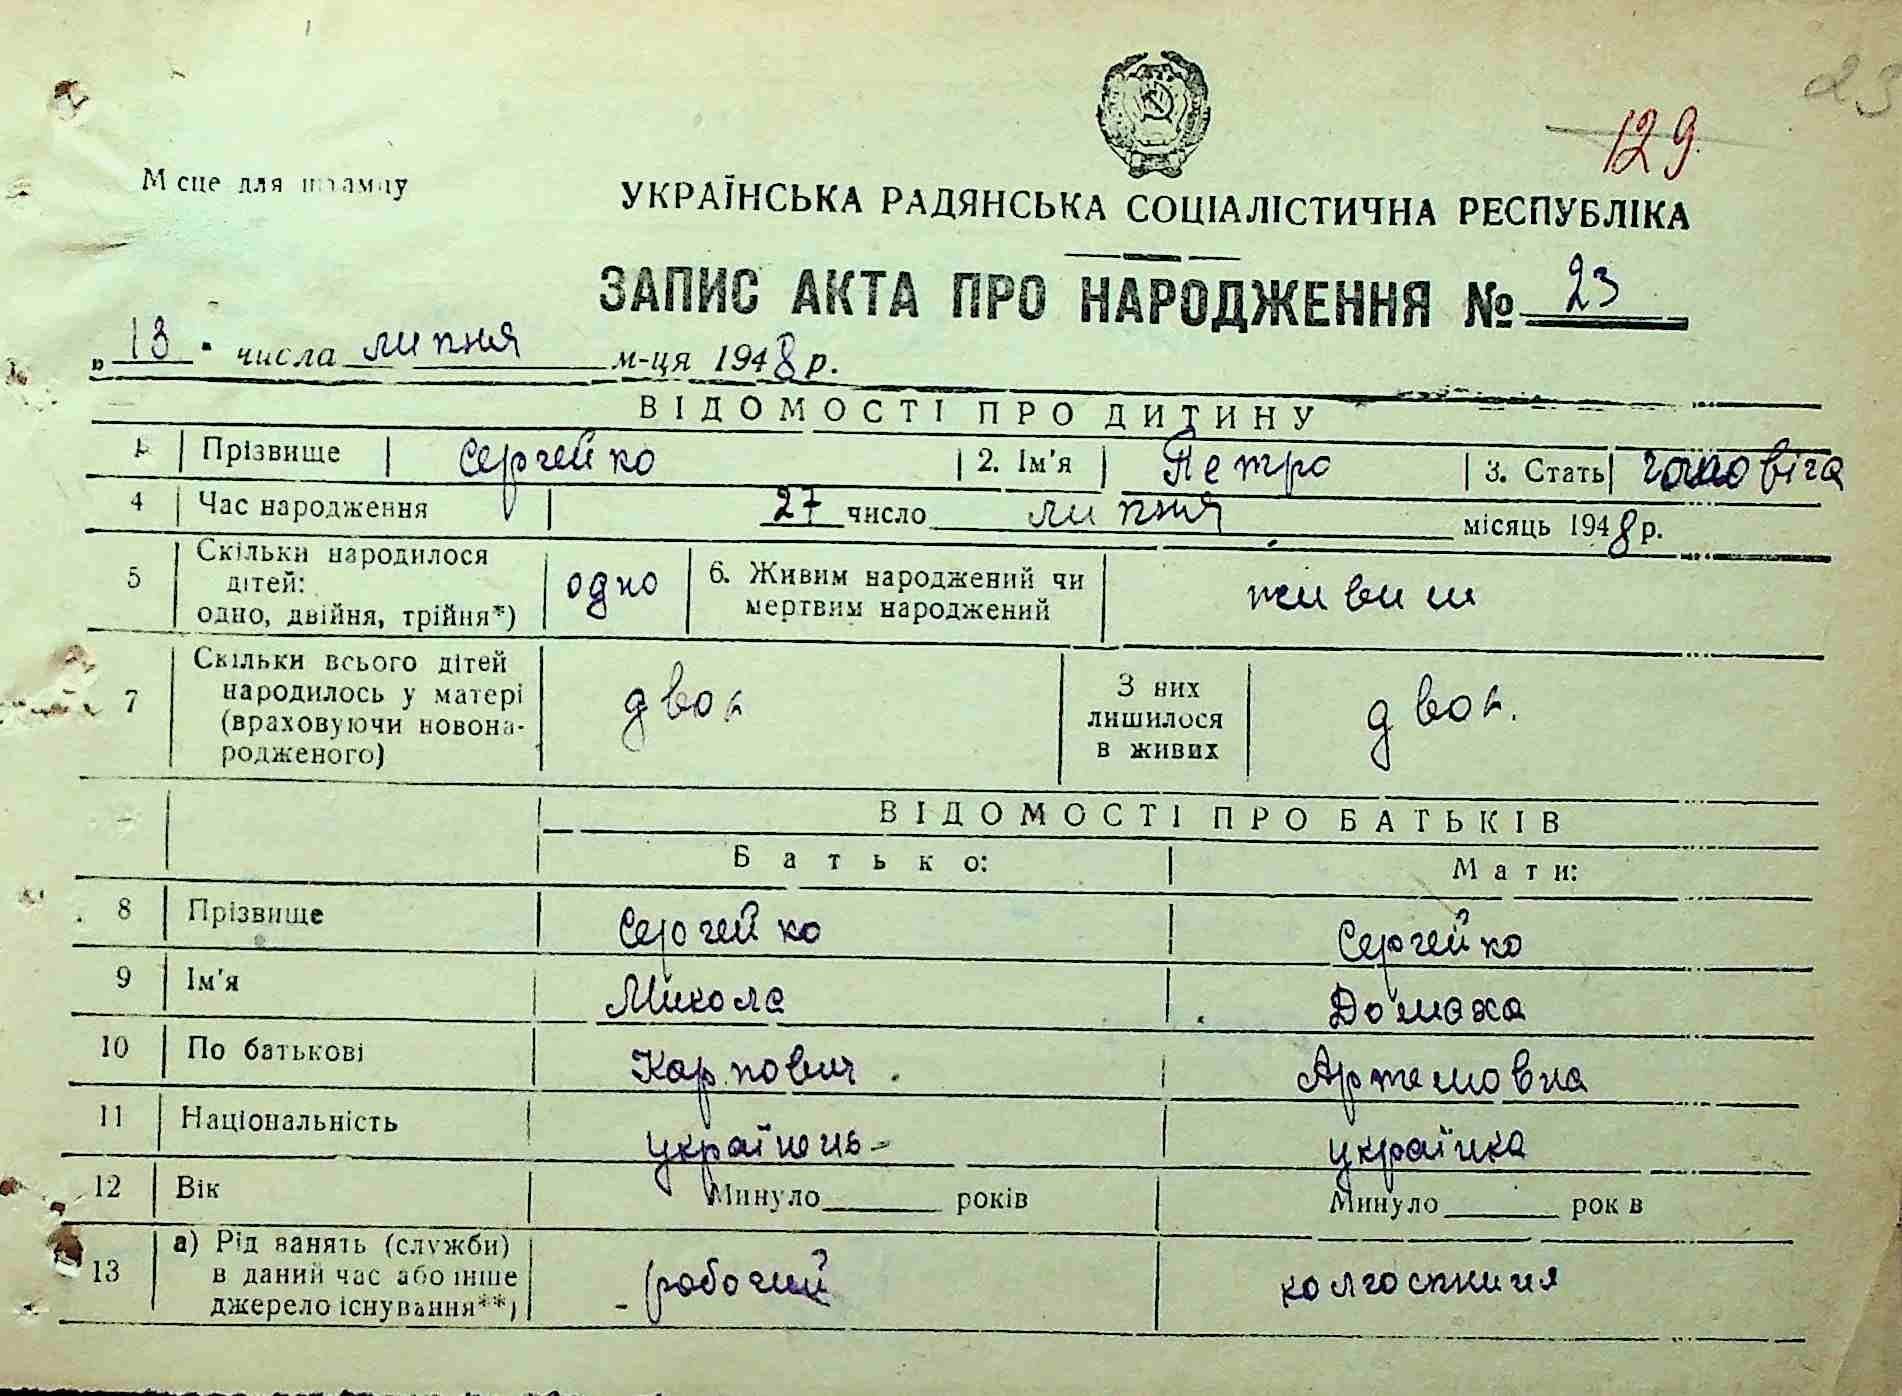 23
129
Місце для штампу
УКРАЇНСЬКА РАДЯНСЬКА СОЦІАЛІСТИЧНА РЕСПУБЛІКА
ЗАПИС АКТА ПРО НАРОДЖЕННЯ № 23
„ 13 " числа липня м-ця 1948 р.
ВІДОМОСТІ ПРО ДИТИНУ
1 Прізвище Сергейко 2. Ім'я Петро 3. Стать
4 Час народження 27 число липня місяць 1948 р.
5 Скільки народилося дітей: одно, двійня, трійня*) одно 6. Живим народжений чи мертвим народжений живим
7 Скільки всього дітей народилось у матері (враховуючи новона-родженого) двоє З них лишилося в живих двоє.
ВІДОМОСТІ ПРО БАТЬКІВ
Батько: Мати:
8 Прізвище Сергейко Сергейко
9 Ім'я Микола Домаха
10 По батькові Карпович Артемовна
11 Національність українець українка
12 Вік Минуло років Минуло рок в
13 а) Рід занять (служби) в даний час або інше джерело існування**) робочий колгоспниця